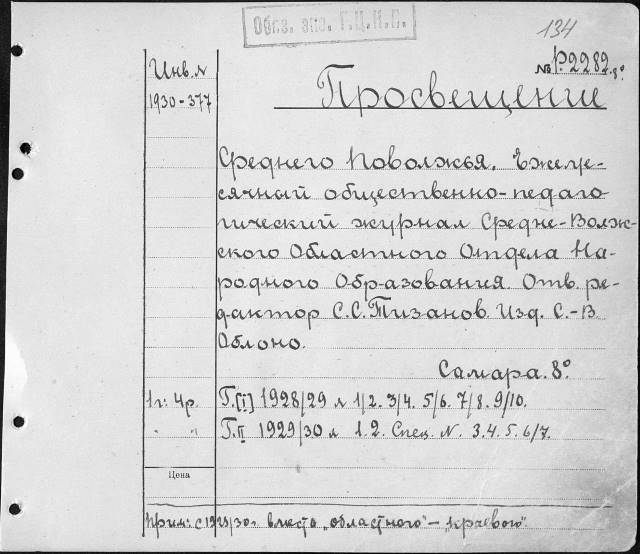 Обяз. экз. Г.Ц.К.П.
134
Инв. №
№ Р.2282.8°
1930-377
Просвещение
Среднего Поволжья. Ежеме-
сячный общественно-педаго-
гический журнал Средне-Волж-
ского Областного Отдела На-
родного Образования. Отв. ре-
дактор С.С. Тизанов. Изд. С.-В.
Облоно.
Самара. 8°
1г: 4р. Г.[I] 1928/29 № 1/2. 3/4. 5/6. 7/8. 9/10.
" " Г.II 1929/30 № 1. 2. Спец. N. 3.4. 5. 6/7.
Цена
Прим: с 1929/30 г. вместо „областного" – „краевого".